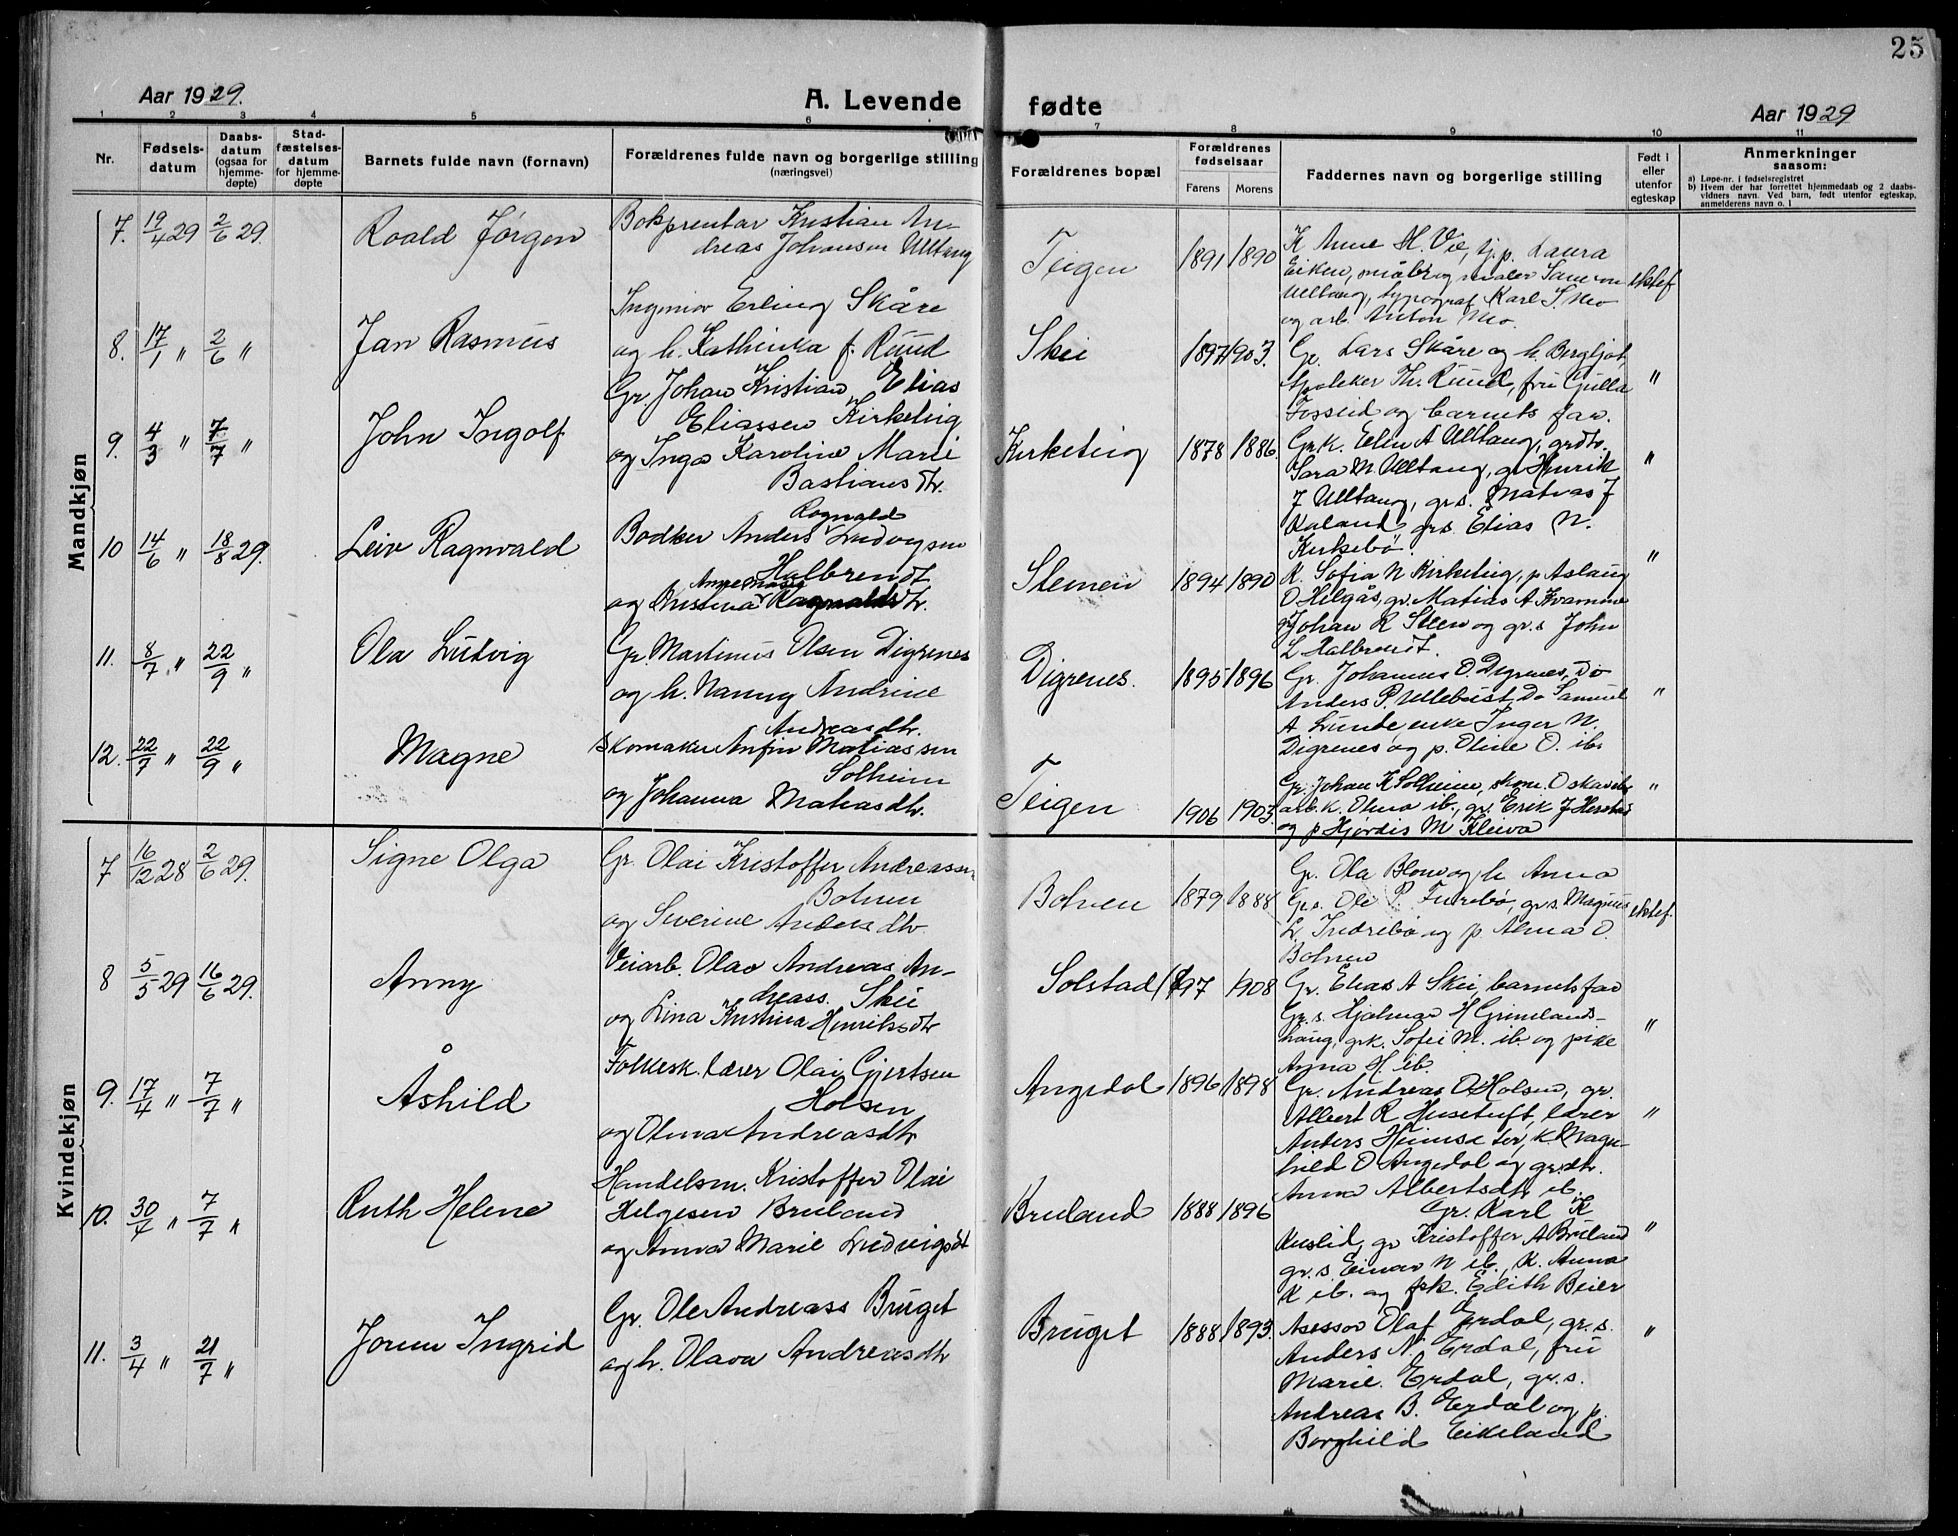 25
Aar 1929.
A. Levende fødte
Aar 1929
1 2 3 4 5 6 7 8 9 10 11
Nr.
Fødsels-
datum
Daabs-
datum
(ogsaa for
hjemme-
døpte)
Stad-
fæstelses-
datum
for hjemme-
døpte
Barnets fulde navn (fornavn)
Forældrenes fulde navn og borgerlige stilling
(næringsvei)
Forældrenes bopæl
Forældrenes
fødselsaar
Farens Morens
Faddernes navn og borgerlige stilling
Født i
eller
utenfor
egteskap
Anmerkninger
saasom:
a) Løpe-nr. i fødselsregistret
b) Hvem der har forrettet hjemmedaab og 2 daabs-
vidners navn. Ved barn, født utenfor egteskap,
anmelderens navn o. l
Mandkjøn
7. 19/4 29 2/6 29. Roald Jørgen
Bokprentar Kristian An-
dreas Johansen Ulltang
Teigen 1891 1890
K Anne M. Vie, tj.p. Laura
Eiken, småbr og maler
Ulltang, typograf Karl S. Mo
og arb. Anton Mo.
ektef
8. 17/1 " 2/6 " Jan Rasmus
Ingeniør Erling Skåre
og h. Kathinka f. Ruud
Skei 1897 1903.
Gr. Lars Skåre og h. Bergljot,
Apoteker Th. Ruud, fru Gulla
Fosseid og barnets far.
"
9. 4/3 " 7/7 " John Ingolf
Gr. Johan Kristian Elias
Eliassen Kirketeig
og Inga Karoline Marie
Bastiansdtr.
Kirketeig 1878 1886.
Grk. Elen A Ulltang, grdtr.
Sara M. Ulltang, gr Henrik
J Ulltang, grs. Matias J
Kaland, grs Elias N.
Kirkebø.
"
10 14/6 " 18/8 29. Leiv Ragnvald
Bødker Anders Rognvald Ludvigsen
Halbrendt
og Kristina Ragnvaldsdtr.
Steinen 1894 1890
K. Sofia N Kirketeig, p Aslaug
O Helgås, gr. Matias A Kvamme
gr Johan R Steen og gr.s John
L Halbrendt.
"
11. 8/7 " 22/9 " Ola Ludvig
Gr Martinus Olsen Digrenes
og h. Nanny Andrine
Andreasdtr.
Digrenes. 1895 1896
Gr. Johannes O. Digrenes, Do
Anders P. Ullebust, Do Samuel
A Lunde, enke Inger N.
Digrenes og p. Oline O. ib.
"
12. 22/7 " 22/9 " Magne
Skomaker Anfin Matiassen
Solheim
og Johanna Matiasdtr.
Teigen 1906 1903.
Gr. Johan K Solheim, skom. Oskar ib.
arb.k. Olina ib., gr. Erik J Herstad
og p Hjørdis M Kleiva
"
Kvindekjøn
7 16/12 28 2/6 29. Signe Olga
Gr. Olai Kristoffer Andreassen
Botnen
og Severine Andersdtr.
Botnen 1879 1888
Gr. Ola Blom og h Anna
Gr. Ole P. Furebø, gr.s. Magnus
L. Indrebø og p. Alma O.
Botnen
ektef.
8 5/5 29 16/6 29. Anny
Veiarb. Olav Andreas An-
dreass. Skei
og Lina Kristina Henriksdtr
Solstad 1897 1908
Gr. Elias A Skei, barnets far
Gr.s. Hjalmar H Grimelands-
haug, grk. Sofie M. ib. og pike
Anna H. ib.
"
9. 17/4 " 7/7 " Åshild
Folkesk. lærer Olai Gjertsen
Holsen
og Olina Andreasdtr
Angedal 1896 1898
Gr. Andreas O Holsen, gr.
Albert R Husetuft, lærer
Anders, K. Magn-
hild O Angedal og gr.dtr.
Anna Albertsdtr ib.
"
10. 30/4 " 7/7 " Ruth Helene
Handelsm. Kristoffer Olai
Helgesen Bruland
og Anna Marie Ludvigsdt
Bruland 1888 1896
Gr. Karl K
Kuslid, gr Kristoffer A Bruland
gr.s. Einar N ib., K. Anna
K ib. og frk. Edith Beier
"
11. 3/4 " 21/7 " Jorun Ingrid
Gr. Ole Andreass Bruget
og h. Olava Andreasdtr
Bruget 1888 1893.
Asessor Olaf Erdal, gr.s.
Anders N. Erdal, fru
Marie Erdal, gr.s.
Andreas B. Erdal og p.
Borghild Eikeland
"